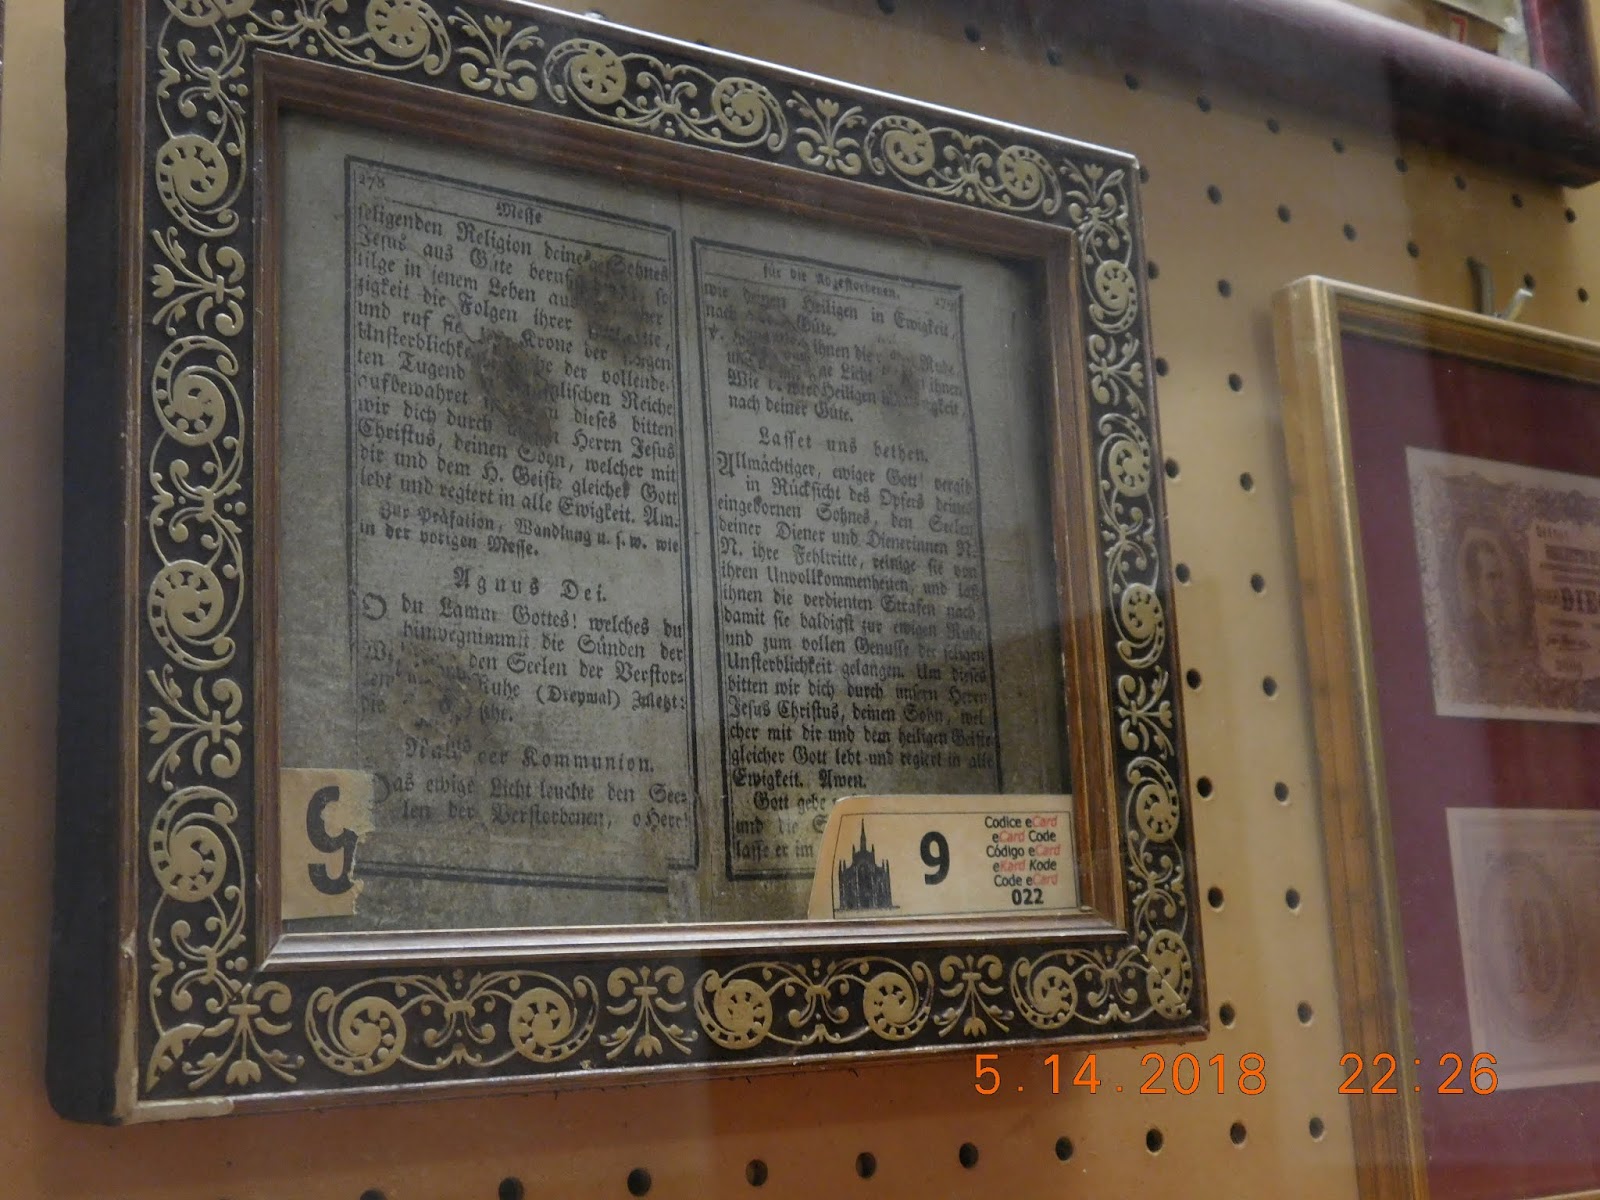 278
Messe
seligenden Religion deines Sohnes
Jesus aus Güte
tilge in jenem Leben aus
zigkeit die Folgen ihrer
und ruf sie zur Krone der
Unsterblichke der vollende-
ten Tugend Reiche
aufbewahret dieses bitten
wir dich durch Herrn Jesus
Christus, deinen Sohn, welcher mit
dir und dem H. Geiste gleicher Gott
lebt und regiert in alle Ewigkeit. Am.
Zur Präfation, Wandlung u. s. w. wie
in der vorigen Messe.
Agnus Dei.
O du Lamm Gottes! welches du
hinwegnimmst die Sünden der
den Seelen der Verstor-
Ruhe (Dreymal) Zuletzt:
die
Nach der Kommunion.
Das ewige Licht leuchte den See-
len der Verstorbenen, o Herr!
für die Abgestorbenen. 279
wie deinen Heiligen in Ewigkeit,
nach Güte.
ihnen die Ruhe,
Licht ihnen,
Wie Heiligen
nach deiner Güte.
Lasset uns bethen.
Allmächtiger, ewiger Gott! vergib
in Rücksicht des Opfers deines
eingebornen Sohnes, den Seelen
deiner Diener und Dienerinnen N.
N. ihre Fehltritte, reinige sie von
ihren Unvollkommenheiten, und laß
ihnen die verdienten Strafen nach,
damit sie baldigst zur ewigen Ruhe
und zum vollen Genusse der seligen
Unsterblichkeit gelangen. Um dieses
bitten wir dich durch unsern Herrn
Jesus Christus, deinen Sohn, wel
cher mit dir und dem heiligen Geiste
gleicher Gott lebt und regiert in alle
Ewigkeit. Amen.
Gott gebe
und die
lasse er im
9
9
Codice eCard
eCard Code
Código eCard
eKard Kode
Code eCard
022
5.14.2018 22:26